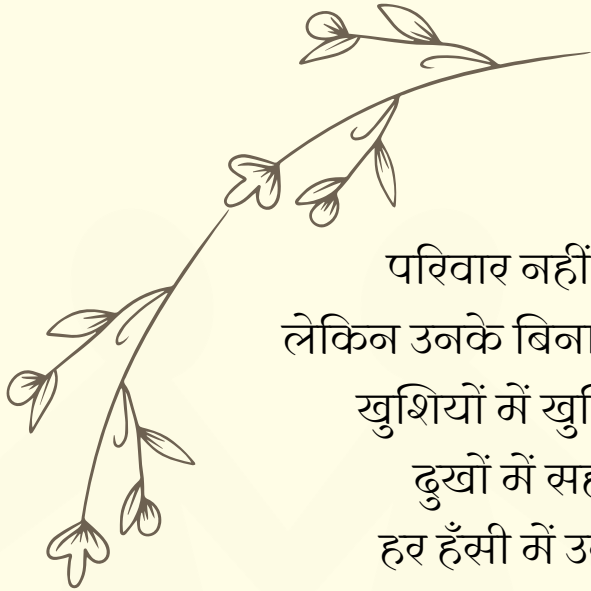 परिवार नहीं
लेकिन उनके बिना
खुशियों में
दुखों में
हर हँसी में